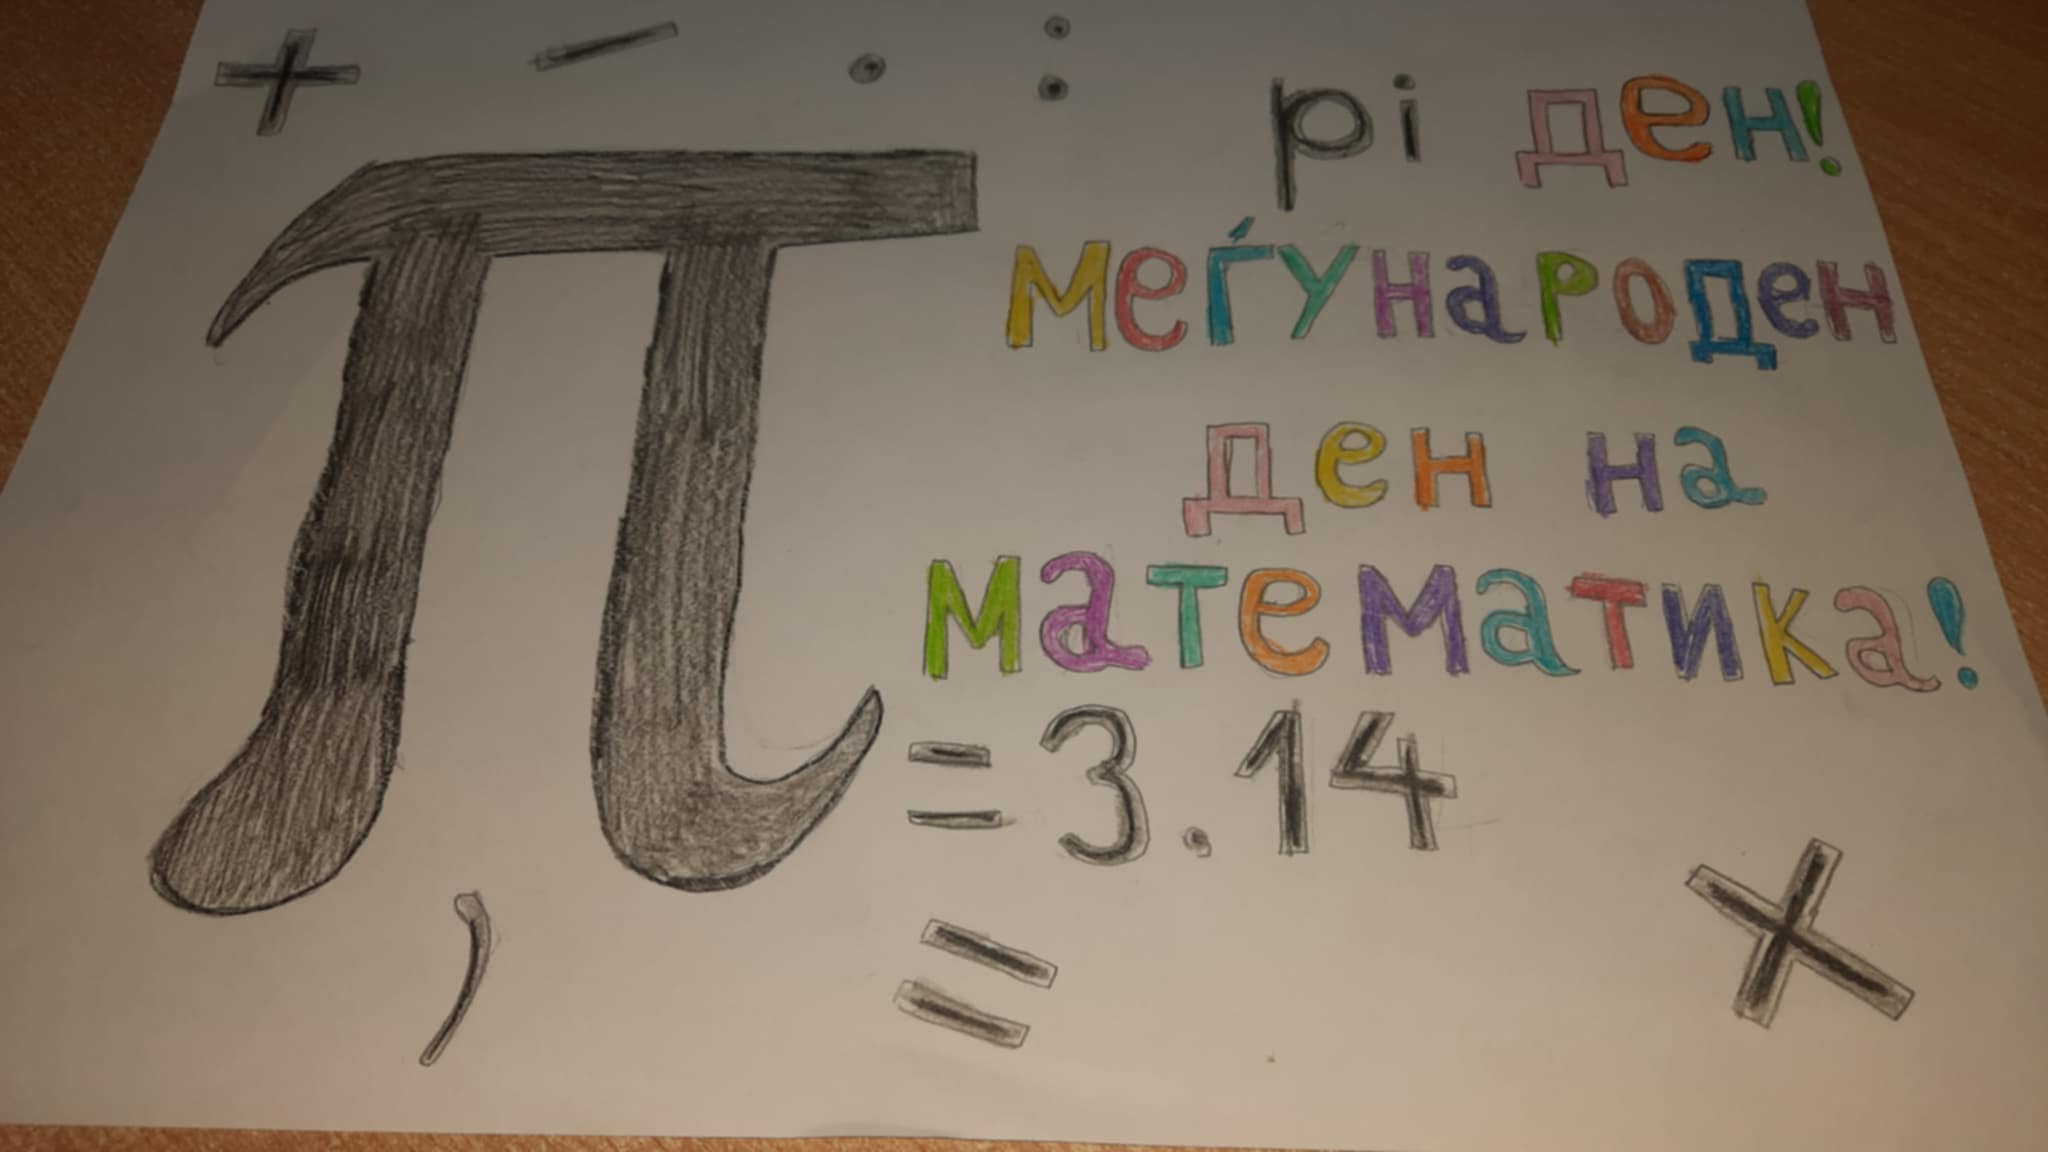 + − · :
pi ден!
меѓународен
ден на
математика!
π = 3.14
, = ×